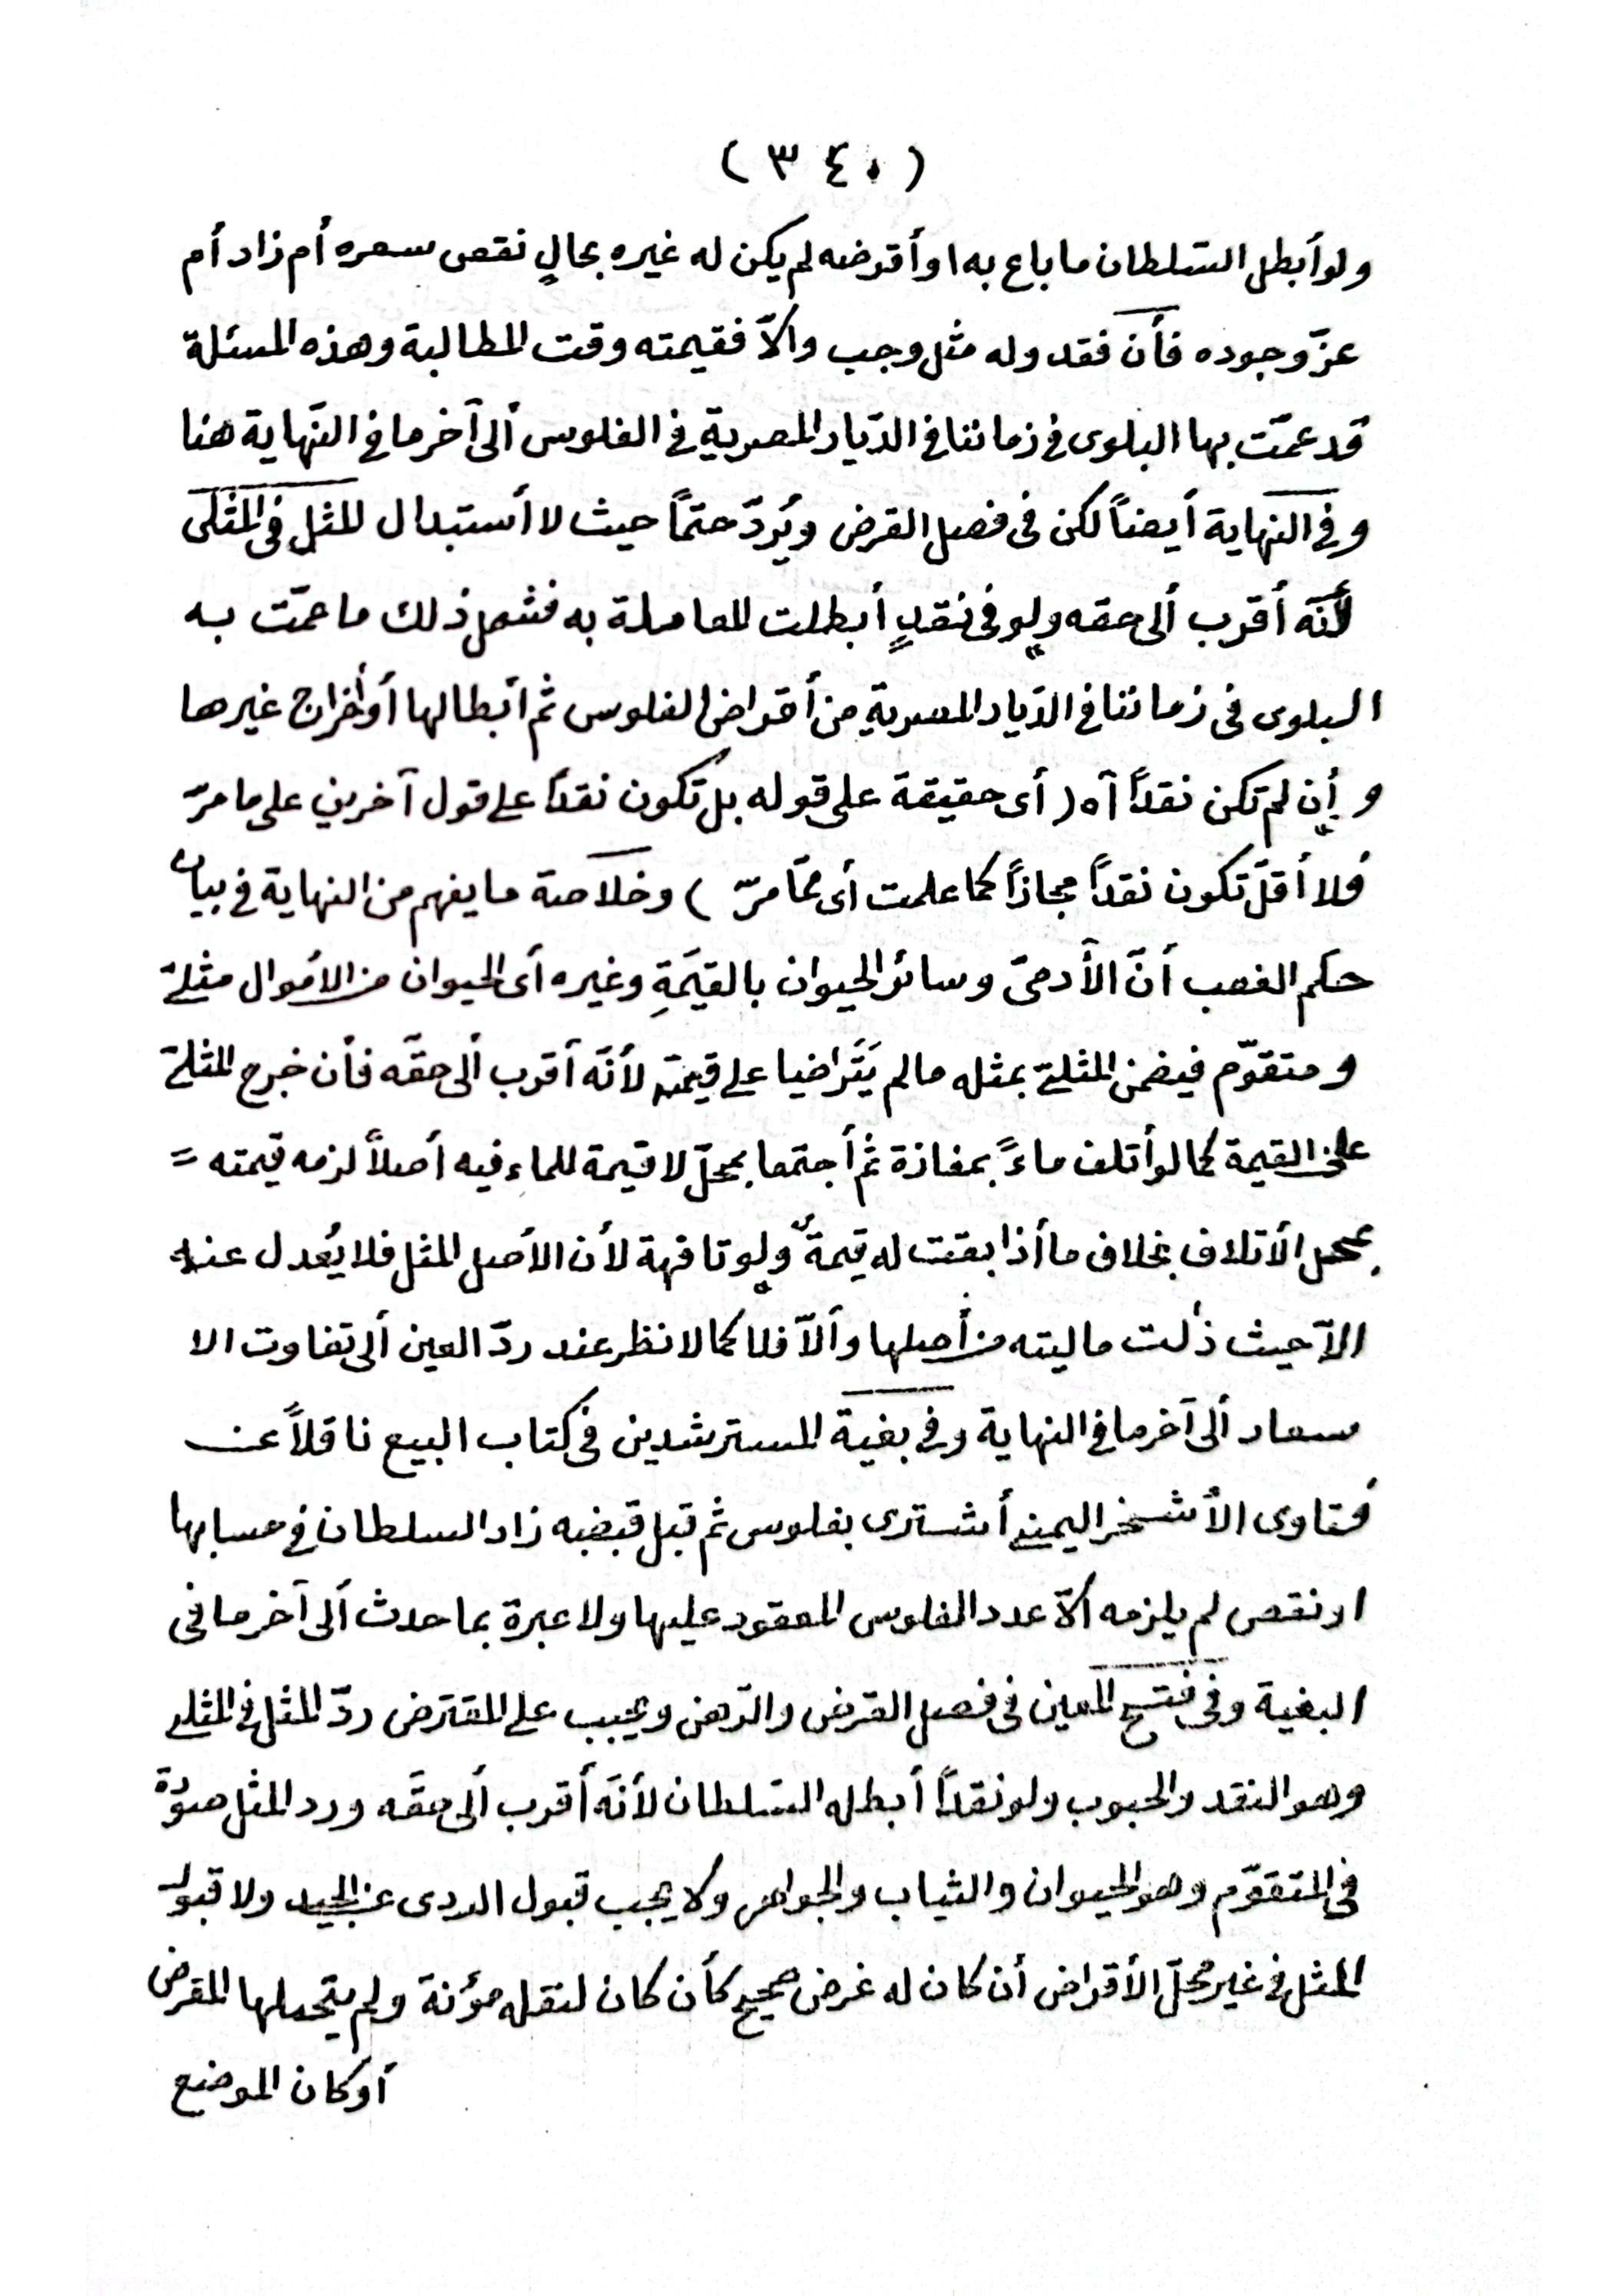 ( ٣٤٠ )
ولو أبطل السّلطان ما باع به او أقرضه لم يكن له غيره بحالٍ نقص سعره أم زاد أم
عزّ وجوده فأن فقد وله مثل وجب والاّ فقيمته وقت المطالبة وهذه المسئلة
قد عمّت بها البلوى فى زماننا فى الدّيار المصرية فى الفلوس ألى آخر ما فى النّهاية هنا
وفى النهاية أيضاً لكن فى فصل القرض ويُردّ حتمًا حيث لا أستبدال المثل فى المثلى
لأنّه أقرب ألى حقه ولو فى نقدٍ أبطلت المعاملة به فشمل ذلك ما عمّت به
البلوى فى زماننا فى الدّيار المصرية من أقراض الفلوس ثم أبطالها أو أخراج غيرها
و إن لم تكن نقداً آه ( أى حقيقة على قوله بل تكون نقداً على قول آخرين على ما مرّ
فلا أقلّ تكون نقداً مجازاً كما علمت أى ممّا مرّ ) وخلاصة ما يفهم من النهاية فى بيان
حكم الغصب أنّ الآدمىّ وسائر الحيوان بالقيَمةِ وغيره أى الحيوان من الأموال مثلىّ
ومتقوّم فيضمن المثلىّ بمثله ما لم يَتَراضيا على قيمته لأنّه أقرب ألى حقّه فأن خرج المثلىّ
عن القيمة كما لو أتلف ماءً بمفازة ثم أجتمعا بمحلّ لا قيمة للماء فيه أصلاً لزمه قيمته =
بمحل الأتلاف بخلاف ما أذا بقيت له قيمةٌ ولو تافهة لأن الأصل المثل فلا يُعدل عنه
الاّ حيث زٰلت ماليته من أصلها وألاّ فلا كما لا نظر عند ردّ العين ألى تفاوت الا
سعار ألى آخر ما فى النهاية وفى بغية المسترشدين فى كتاب البيع ناقلاً عن
فتاوى الأشخر اليمنى أشترى بفلوس ثم قبل قبضه زاد السلطان فى حسابها
او نقص لم يلزمه الاّ عدد الفلوس المعقود عليها ولا عبرة بما حدث ألى آخر ما فى
البغية وفى فتح المعين فى فصل القرض والرّهن ويجب على المقترض ردّ المثل فى المثلى
وهو النقد والحبوب ولو نقداً أبطله السّلطان لأنّه أقرب ألى حقّه ورد المثل صورة
فى المتقوّم وهو الحيوان والثياب والجواهر ولا يجب قبول الردى عن الجيد ولا قبول
المثل فى غير محلّ الأقراض أن كان له غرض صحيح كأن كان لنقله مؤنة ولم يتحملها المقرض
أو كان الموضع